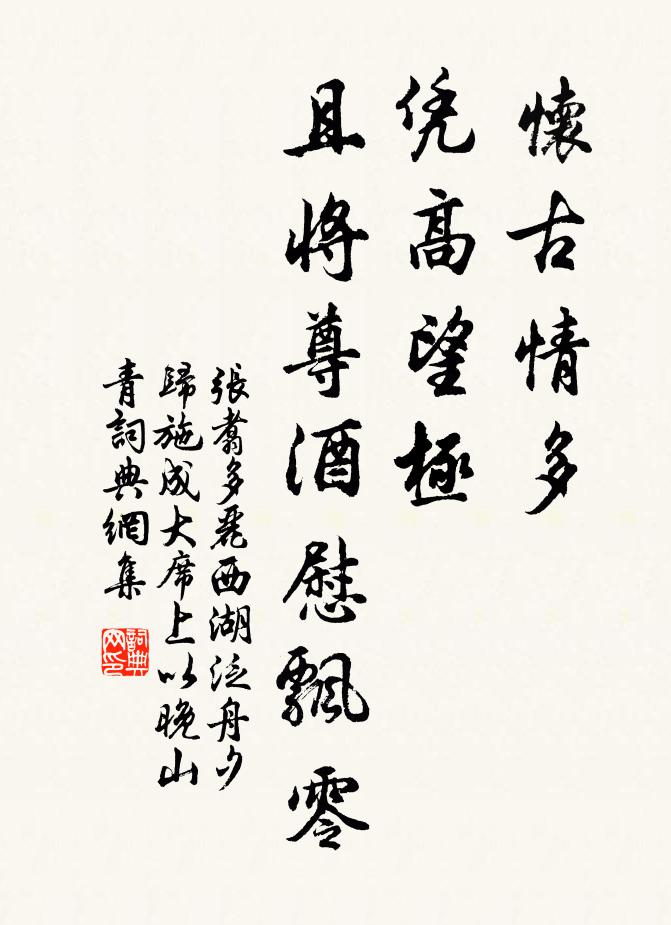 懷古情多
凭高望極
且將尊酒慰飄零
張翥多麗西湖泛舟夕
歸施成大席上以晚山
青詞典網集
詞典
网印